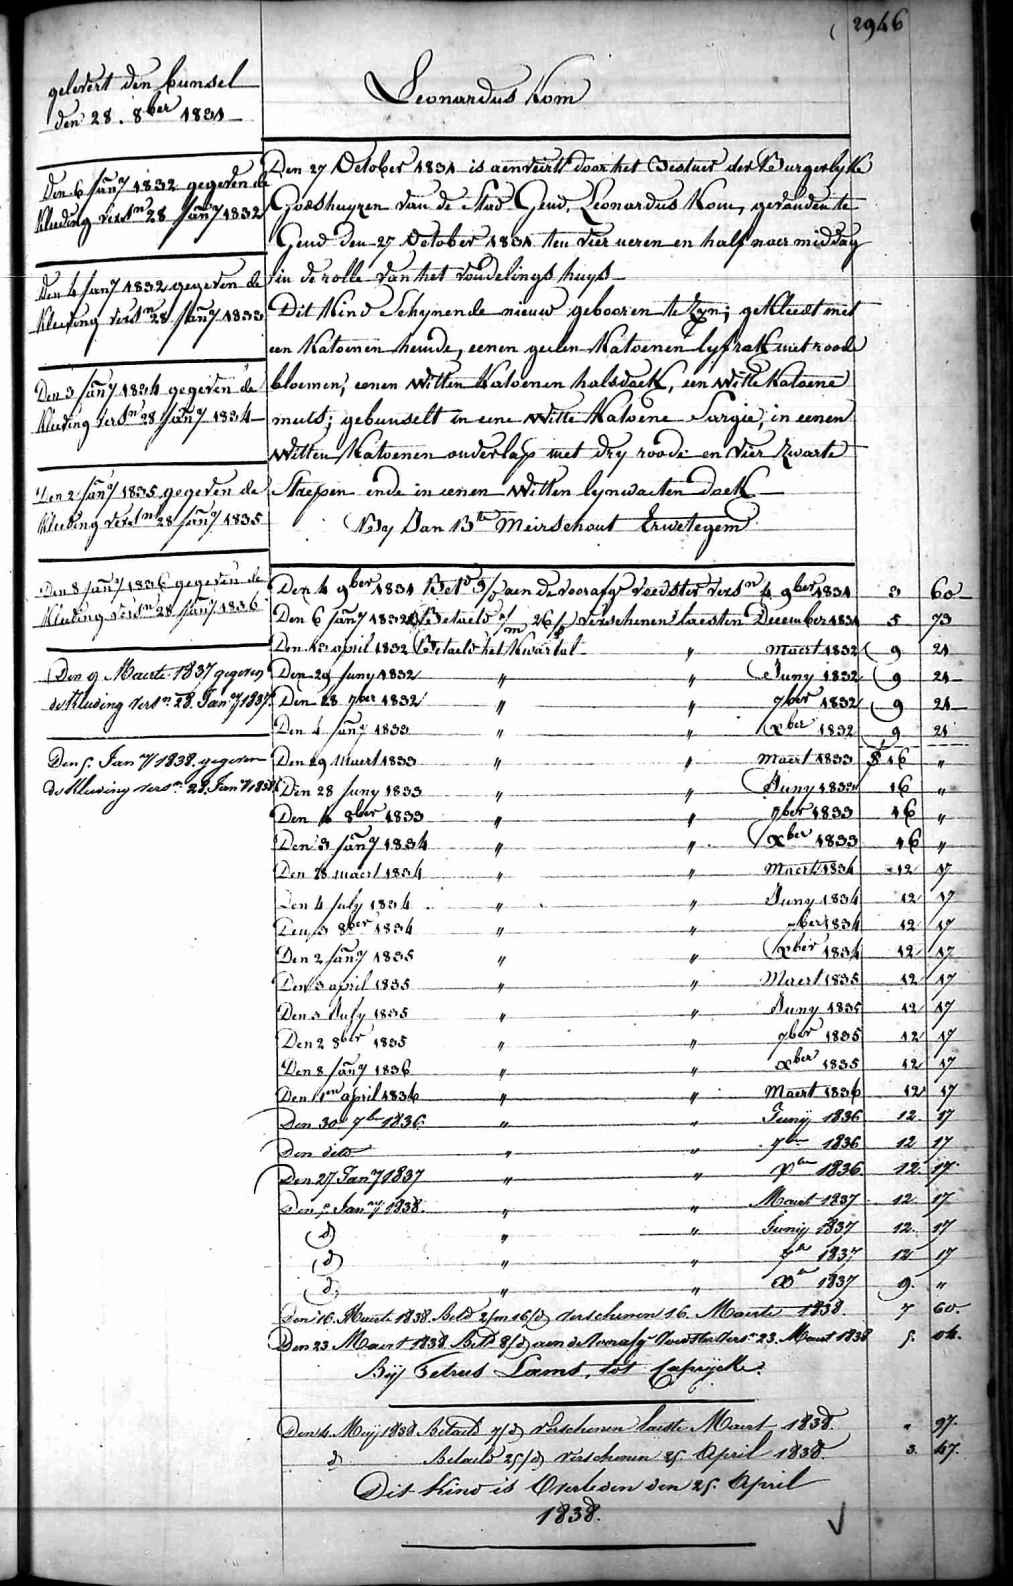 2946
gelevert den bunsel
den 28. 8ber 1831
Leonardus Kom
Den 27 October 1831 is aenveirt door het Bestier der Burgerlyke
Godshuyzen van de Stad Gend, Leonardus Kom, gevonden te
Gend den 27 October 1831 ten vier ueren en half naer middag
in de rolle van het vondelings huys
Dit Kind Schynende nieuw gebooren te Zyn; gekleedt met
een Katoenen hemde, eenen geelen Katoenen lyfrak met roode
bloemen, eenen witten Katoenen halsdoek, een witte Katoene
muts; gebunselt in eene witte Katoene Sargie, in eenen
witten Katoenen onderlap met dry roode en vier zwarte
Streepen ende in eenen witten lynwaeten doek
By Jan Bte Meirschout Erwetegem
Den 6 Jany 1832 gegeven de
Kleeding versn 28 Jany 1832
Den 4 Jany 1832 gegeven de
Kleeding versn 28 Jany 1833
Den 3 Jany 1834 gegeven de
Kleeding versn 28 Jany 1834
Den 2 Jany 1835 gegeven de
Kleeding versn 28 Jany 1835
Den 8 Jany 1836 gegeven de
Kleeding versn 28 Jany 1836
Den 9 Maerte 1837 gegeven
de Kleeding versn 28. Jany 1837.
Den 5. Jany 1838. gegeven
de Kleeding versn 28. Jany 1838
Den 4 9ber 1831 aen de voorafg voedster versn 4 9ber 1831 3 60
Den 6 Jany 1832 Betaeld 26 verschenen laesten December 1831 5 73
Den april 1832 Betaeld het Kwartal " Maert 1832 9 21
Den 29 Juny 1832 " " Juny 1832 9 21
Den 28 7ber 1832 " " 7ber 1832 9 21
Den 4 Jany 1833 " " Xber 1832 9 21
Den 29 Maert 1833 " " Maert 1833 16 "
Den 28 Juny 1833 " " Juny 1833 16 "
Den 4 8ber 1833 " " 7ber 1833 16 "
Den 3 Jany 1834 " " Xber 1833 16 "
Den 28 maert 1834 " " Maert 1834 12 17
Den 4 July 1834 " " Juny 1834 12 17
Den 3 8ber 1834 " " 7ber 1834 12 17
Den 2 Jany 1835 " " Xber 1834 12 17
Den 3 april 1835 " " Maert 1835 12 17
Den 3 July 1835 " " Juny 1835 12 17
Den 2 8ber 1835 " " 7ber 1835 12 17
Den 8 Jany 1836 " " Xber 1835 12 17
Den 1en april 1836 " " Maert 1836 12 17
Den 30 7br 1836 " " Junij 1836 12. 17
Den dito " " 7br 1836 12 17
Den 27 Jany 1837 " " Xber 1836 12. 17.
Den 5 Jany 1838. " " Maert 1837 12. 17
(d) " " Junij 1837 12. 17
(d) " " 7br 1837 12 17
(d) " " Xbr 1837 9. "
Den 16. Maerte 1838. Betd 2/m 16/d verschenen 16. Maerte 1838. 7 60.
Den 23 Maert 1838 Betd 8/d aen de voorafg voedster versn 23. Maert 1838 5. 04.
Bij Petrus Lams, tot Caprijcke.
Den 4. Meij 1838. Betaeld 7/d verschenen laeste Maert 1838. " 97.
d Betaeld 25/d verschenen 25. April 1838. 3. 47.
Dit Kind is Overleden den 25. April
1838.